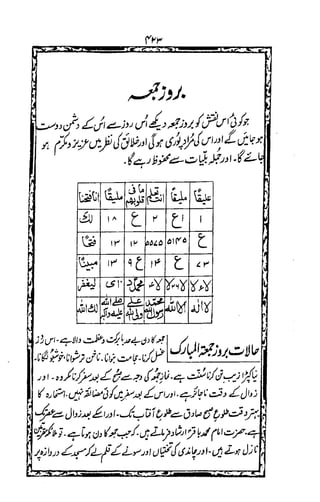 ۴۲۳
بروز جمعہ
جو کوئی اس نقش کو بروز جمعہ دیکھے اس روز سے اُس کے دشمن دوست
ہو جائیں گے اور اس کی مُراد پُوری ہو گی اور خلائق کی نظر میں عزیز و مکرّم ہو
جائے گا۔ اور جملہ بلیّات سے محفوظ رہے گا۔
علیقًا ملیقًا انت تعلم ما فی قلوبھم ملیقًا انا فتحنا
۱ اع ۲ ع ۱۸ لک
ع ۵۱۴۵ ۵۵۷۵ ۱۲ ۱۳ فتحًا
۷۳ ع ۱۴ ع۹ ۱۳ مبینًا
لیغفر
لا الہ الا اللہ محمد علی ولی اللہ صلی اللہ علیہ وآلہ لک اللہ
حالات بروز جمعۃ المبارک
جمعہ کا دن بے حد بابرکت و عظمت والا ہے۔ اس روز
غسل کرنا۔ حجامت بنوانا۔ ناخن ترشوانا۔ خوشبو لگانا۔
نیا کپڑا زیب تن کرنا سُنّت ہے۔ نماز جمعہ کی وجہ سے صبح کے بعد سفر کرنا مکروہ۔ اور
زوال کے وقت ناجائز ہے۔ اور اس کے بعد سفر میں کوئی مضائقہ نہیں۔ استخارہ کا
بہتر وقت طلوع صبح صادق سے طلوع آفتاب تک۔ اور اسکے بعد زوال سے عصر تک
ہے۔ حضرت امام محمد باقر ارشاد فرماتے ہیں۔ کہ جب جمعہ کا دن ہوتا ہے۔ تو ملائکہ مقربین
نازل ہوتے ہیں۔ اور چاندی کی تختیاں اور سونے کے قلم لے کر مسجد کے دروازہ پر